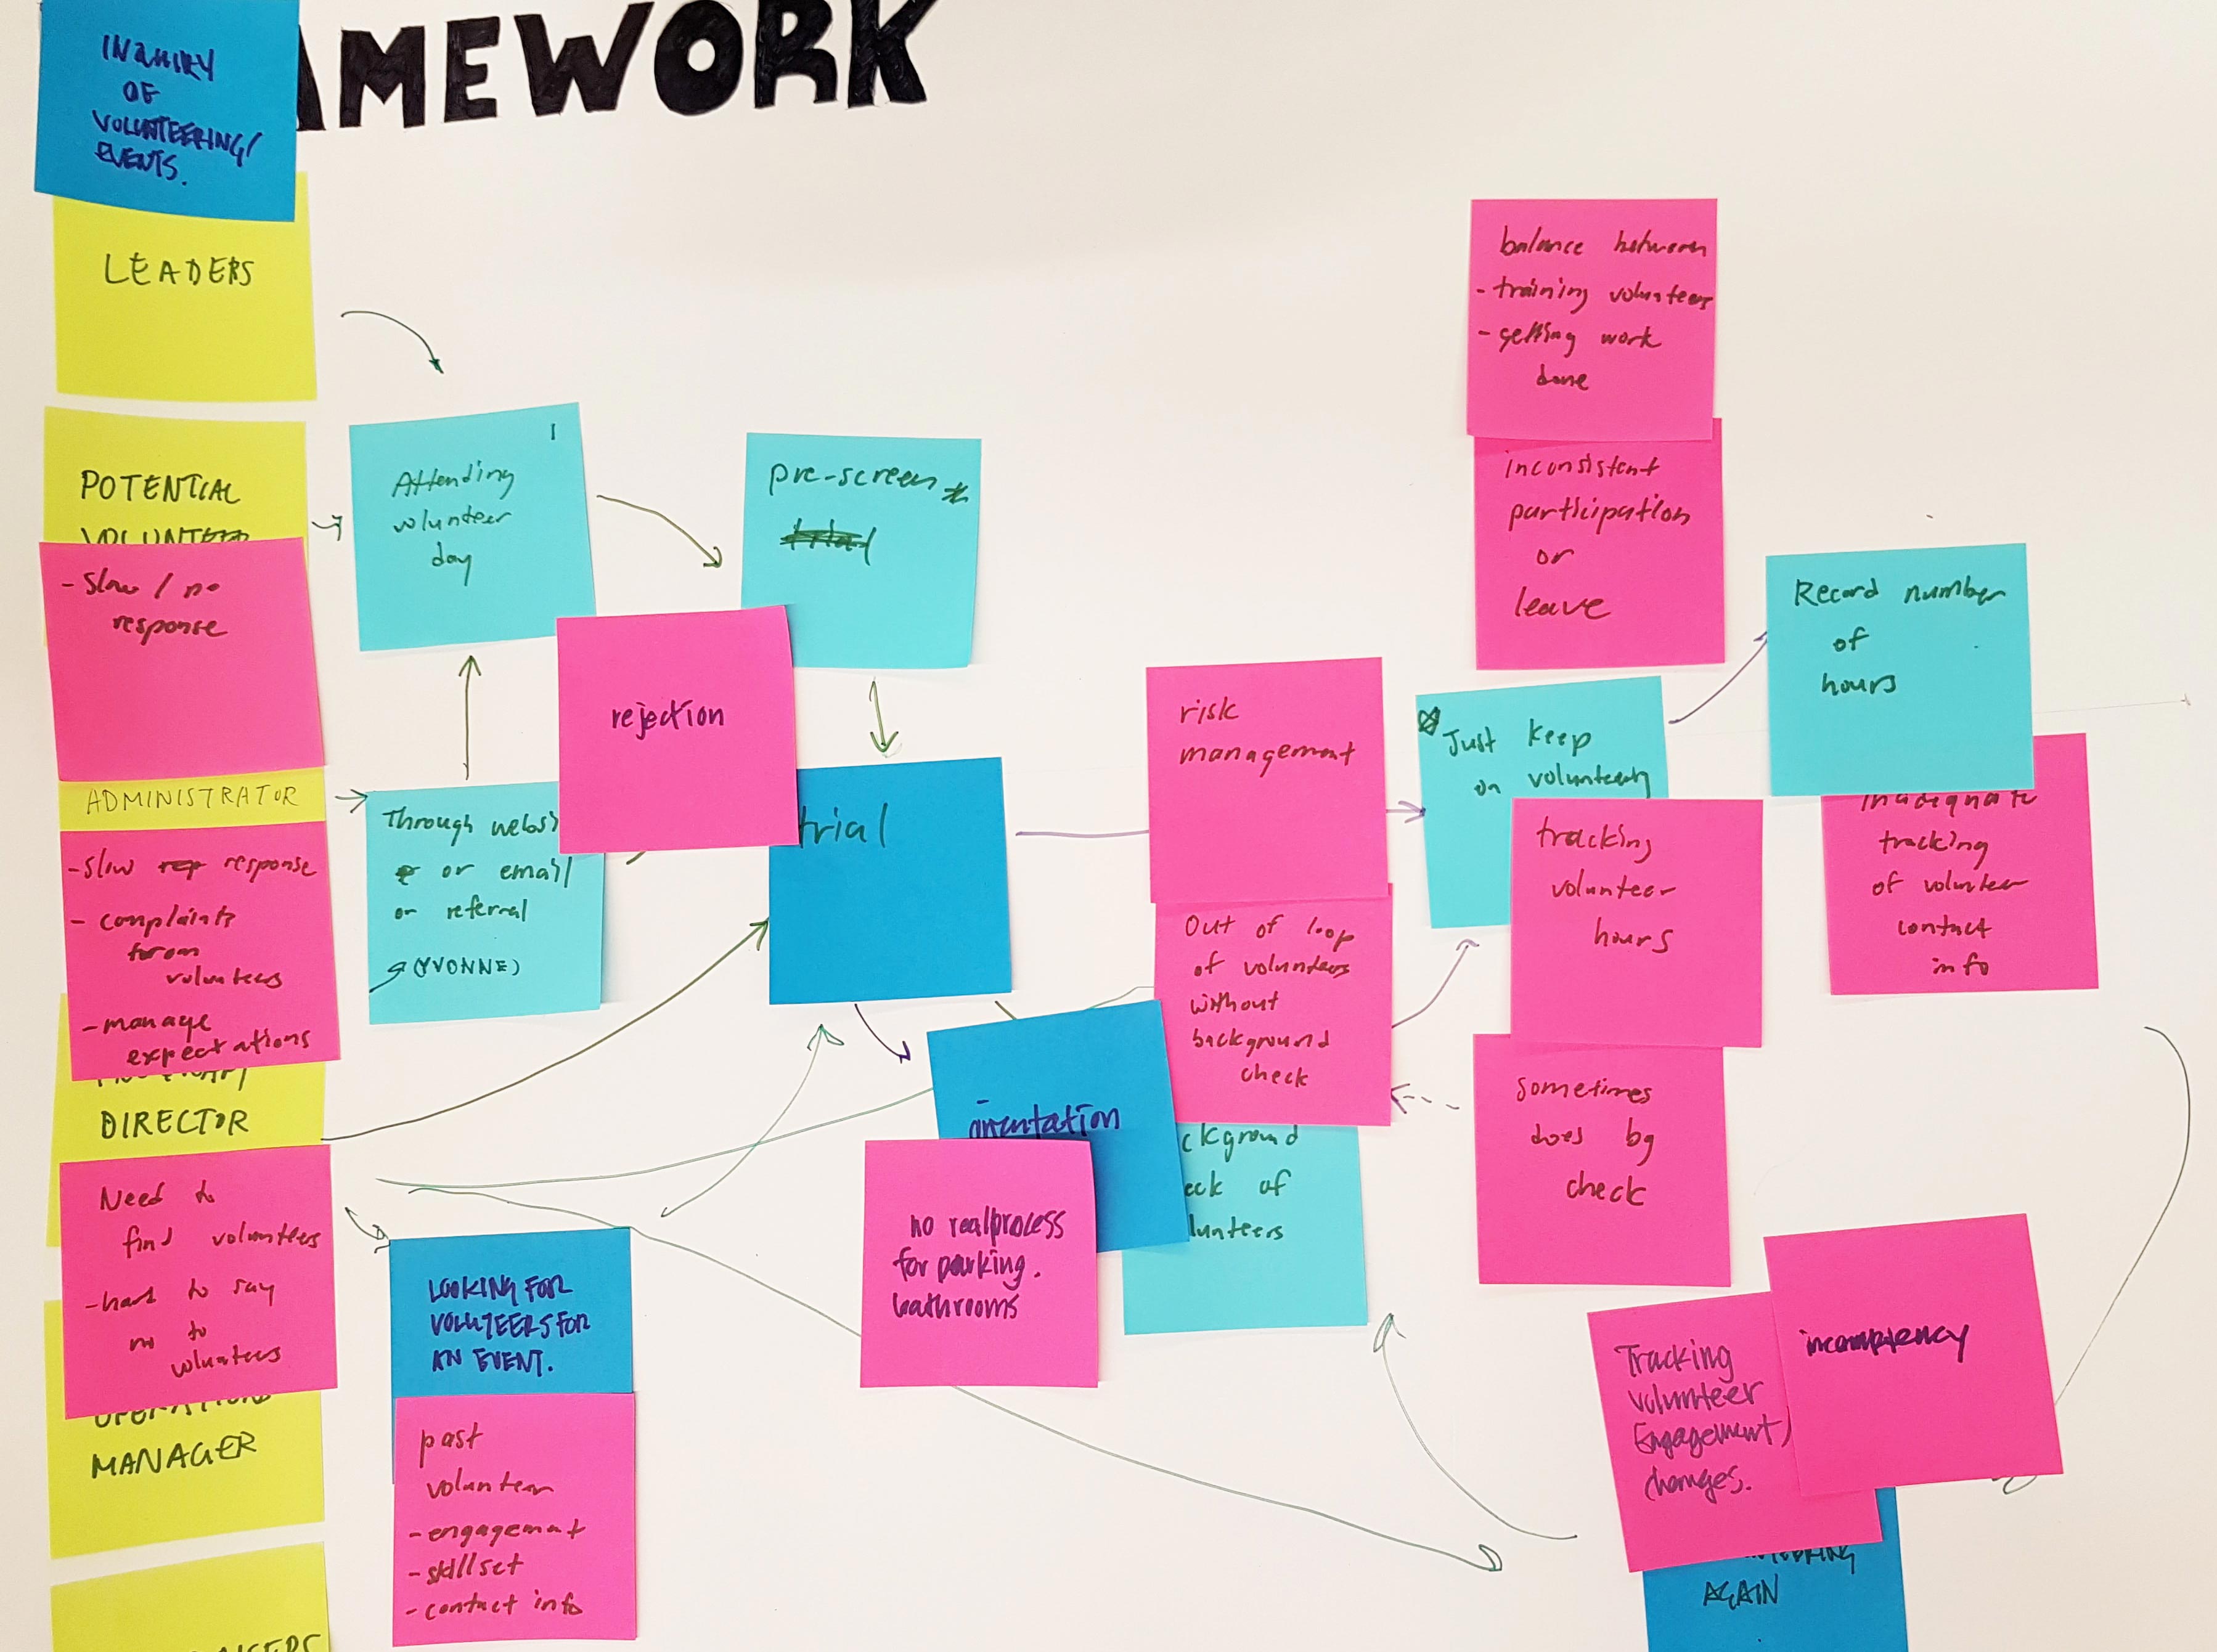 AMEWORK
INQUIRY
OF
VOLUNTEERING/
EVENTS.
LEADERS
POTENTIAL
VOLUNTEER
- slow / no
response
ADMINISTRATOR
- slow response
- complaints
from
volunteers
- manage
expectations
DIRECTOR
Need to
find volunteers
- hard to say
no to
volunteers
MANAGER
1
Attending
volunteer
day
Through websi
or email
or referral
(YVONNE)
LOOKING FOR
VOLUTEERS FOR
AN EVENT.
past
volunteer
- engagement
- skillset
- contact info
pre-screen *
rejection
trial
orientation
no real process
for parking.
bathrooms
risk
management
Out of loop
of volunteers
without
background
check
ckground
eck of
lunteers
balance between
- training volunteers
- getting work
done
inconsistent
participation
or
leave
Just keep
on volunteering
tracking
volunteer
hours
sometimes
does bg
check
Record number
of
hours
inadequate
tracking
of volunteer
contact
info
Tracking
volunteer
Engagement)
changes.
incompetency
AGAIN